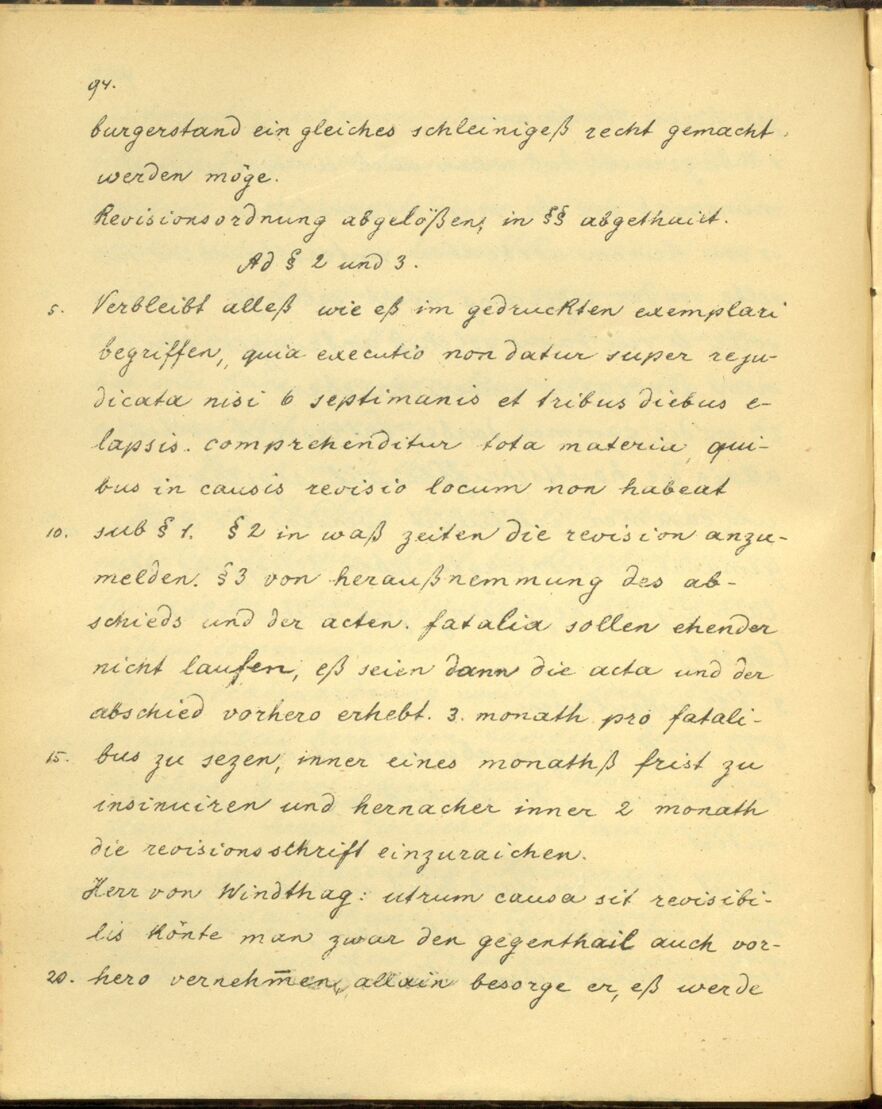 94.
burgerstand ein gleiches schleinigeß recht gemacht
werden möge.
Revisionsordnung abgelößen, in §§ abgethailt.
Ad § 2 und 3.
5. Verbleibt alleß wie eß im gedruckten exemplari
begriffen, quia executio non datur super reju-
dicata nisi 6 septimanis et tribus diebus e-
lapsis. comprehenditur tota materia, qui-
bus in causis revisio locum non habeat
10. sub § 1. § 2 in waß zeiten die revision anzu-
melden. § 3 von heraußnemmung des ab-
schieds und der acten. fatalia sollen ehender
nicht laufen, eß seien dann die acta und der
abschied vorhero erhebt. 3. monath pro fatali-
15. bus zu sezen, inner eines monathß frist zu
insinuiren und hernacher inner 2 monath
die revisionsschrift einzuraichen.
Herr von Windthag: utrum causa sit revisibi-
lis könte man zwar den gegenthail auch vor-
20. hero vernehm̅en, allain besorge er, eß werde